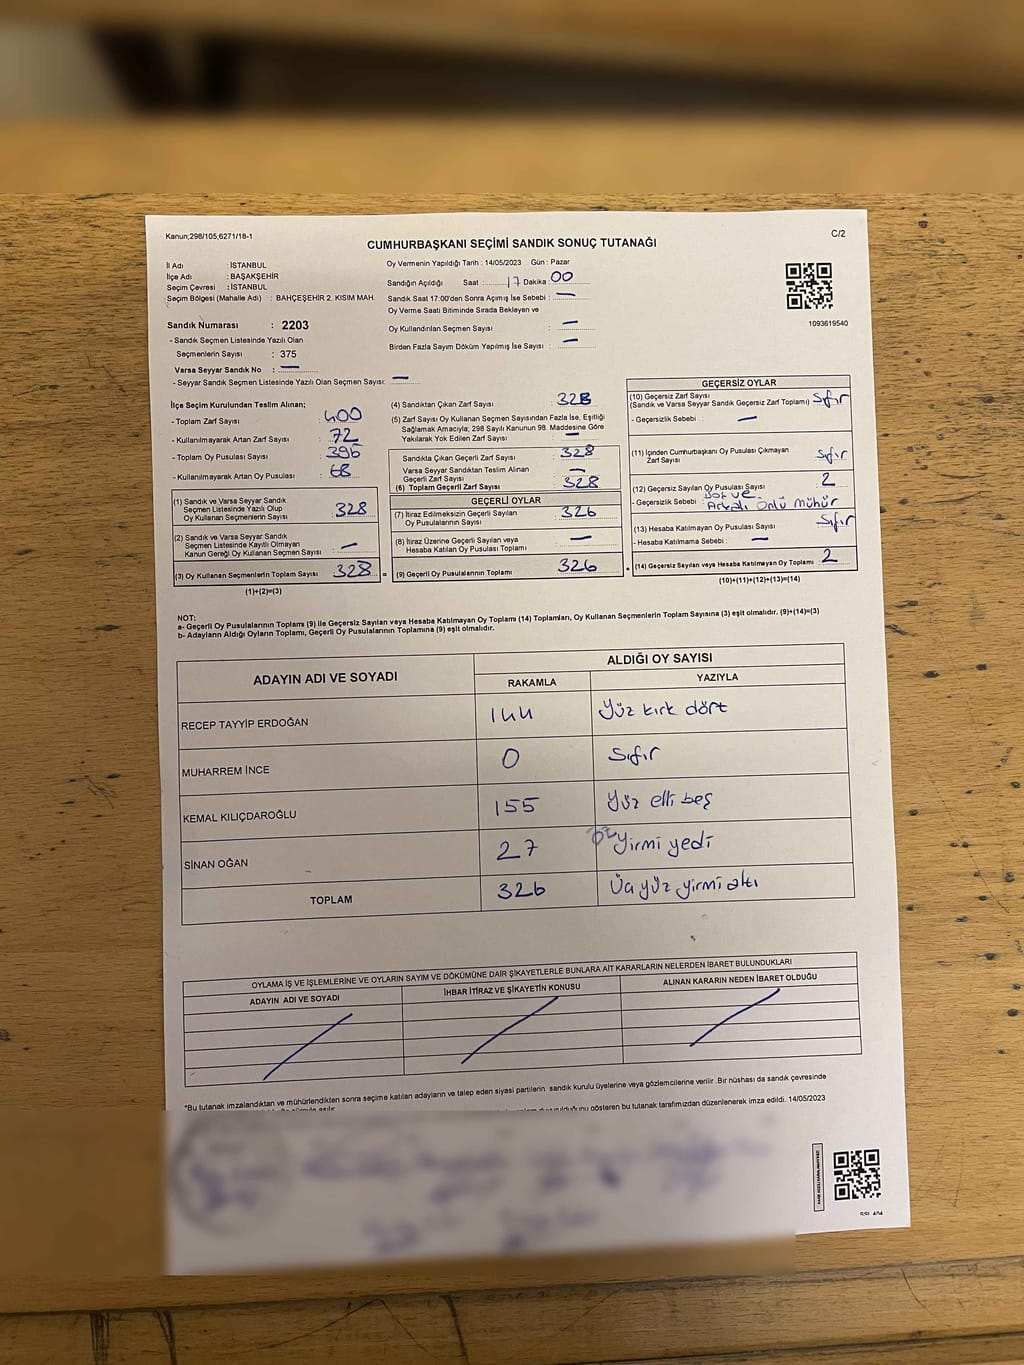 Kanun;298/105;6271/18-1
C/2
CUMHURBAŞKANI SEÇİMİ SANDIK SONUÇ TUTANAĞI
İl Adı : İSTANBUL
İlçe Adı : BAŞAKŞEHİR
Seçim Çevresi : İSTANBUL
Seçim Bölgesi (Mahalle Adı) : BAHÇEŞEHİR 2. KISIM MAH.
Oy Vermenin Yapıldığı Tarih : 14/05/2023 Gün : Pazar
Sandığın Açıldığı Saat : 17 Dakika 00
Sandık Saat 17:00'den Sonra Açımış İse Sebebi : —
Oy Verme Saati Bitiminde Sırada Bekleyen ve
Oy Kullandırılan Seçmen Sayısı : —
Birden Fazla Sayım Döküm Yapılmış İse Sayısı : —
1093619540
Sandık Numarası : 2203
- Sandık Seçmen Listesinde Yazılı Olan
Seçmenlerin Sayısı : 375
Varsa Seyyar Sandık No : —
- Seyyar Sandık Seçmen Listesinde Yazılı Olan Seçmen Sayısı: —
İlçe Seçim Kurulundan Teslim Alınan;
- Toplam Zarf Sayısı : 400
- Kullanılmayarak Artan Zarf Sayısı : 72
- Toplam Oy Pusulası Sayısı : 396
- Kullanılmayarak Artan Oy Pusulası : 68
(1) Sandık ve Varsa Seyyar Sandık
Seçmen Listesinde Yazılı Olup
Oy Kullanan Seçmenlerin Sayısı : 328
(2) Sandık ve Varsa Seyyar Sandık
Seçmen Listesinde Kayıtlı Olmayan
Kanun Gereği Oy Kullanan Seçmen Sayısı : —
(3) Oy Kullanan Seçmenlerin Toplam Sayısı 328 =
(1)+(2)=(3)
(4) Sandıktan Çıkan Zarf Sayısı : 328
(5) Zarf Sayısı Oy Kullanan Seçmen Sayısından Fazla İse, Eşitliği
Sağlamak Amacıyla; 298 Sayılı Kanunun 98. Maddesine Göre
Yakılarak Yok Edilen Zarf Sayısı : —
Sandıkta Çıkan Geçerli Zarf Sayısı : 328
Varsa Seyyar Sandıktan Teslim Alınan
Geçerli Zarf Sayısı : —
(6) Toplam Geçerli Zarf Sayısı : 328
GEÇERLİ OYLAR
(7) İtiraz Edilmeksizin Geçerli Sayılan
Oy Pusulalarının Sayısı : 326
(8) İtiraz Üzerine Geçerli Sayılan veya
Hesaba Katılan Oy Pusulası Toplamı : —
(9) Geçerli Oy Pusulalarının Toplamı : 326 +
GEÇERSİZ OYLAR
(10) Geçersiz Zarf Sayısı
(Sandık ve Varsa Seyyar Sandık Geçersiz Zarf Toplamı) Sıfır
- Geçersizlik Sebebi : —
(11) İçinden Cumhurbaşkanı Oy Pusulası Çıkmayan
Zarf Sayısı : Sıfır
(12) Geçersiz Sayılan Oy Pusulası Sayısı : 2
- Geçersizlik Sebebi : ve
Arkalı Önlü mühür
(13) Hesaba Katılmayan Oy Pusulası Sayısı Sıfır
- Hesaba Katılmama Sebebi : —
(14) Geçersiz Sayılan veya Hesaba Katılmayan Oy Toplamı 2
(10)+(11)+(12)+(13)=(14)
NOT:
a- Geçerli Oy Pusulalarının Toplamı (9) ile Geçersiz Sayılan veya Hesaba Katılmayan Oy Toplamı (14) Toplamları, Oy Kullanan Seçmenlerin Toplam Sayısına (3) eşit olmalıdır. (9)+(14)=(3)
b- Adayların Aldığı Oyların Toplamı, Geçerli Oy Pusulalarının Toplamına (9) eşit olmalıdır.
ADAYIN ADI VE SOYADI
ALDIĞI OY SAYISI
RAKAMLA YAZIYLA
RECEP TAYYİP ERDOĞAN 144 Yüz kırk dört
MUHARREM İNCE 0 Sıfır
KEMAL KILIÇDAROĞLU 155 Yüz elli beş
SİNAN OĞAN 27 Yirmi yedi
TOPLAM 326 Üç yüz yirmi altı
OYLAMA İŞ VE İŞLEMLERİNE VE OYLARIN SAYIM VE DÖKÜMÜNE DAİR ŞİKAYETLERLE BUNLARA AİT KARARLARIN NELERDEN İBARET BULUNDUKLARI
ADAYIN ADI VE SOYADI İHBAR İTİRAZ VE ŞİKAYETİN KONUSU ALINAN KARARIN NEDEN İBARET OLDUĞU
*Bu tutanak imzalandıktan ve mühürlendikten sonra seçime katılan adayların ve talep eden siyasi partilerin sandık kurulu üyelerine veya gözlemcilerine verilir .Bir nüshası da sandık çevresinde
gösteren bu tutanak tarafımızdan düzenlenerek imza edildi. 14/05/2023